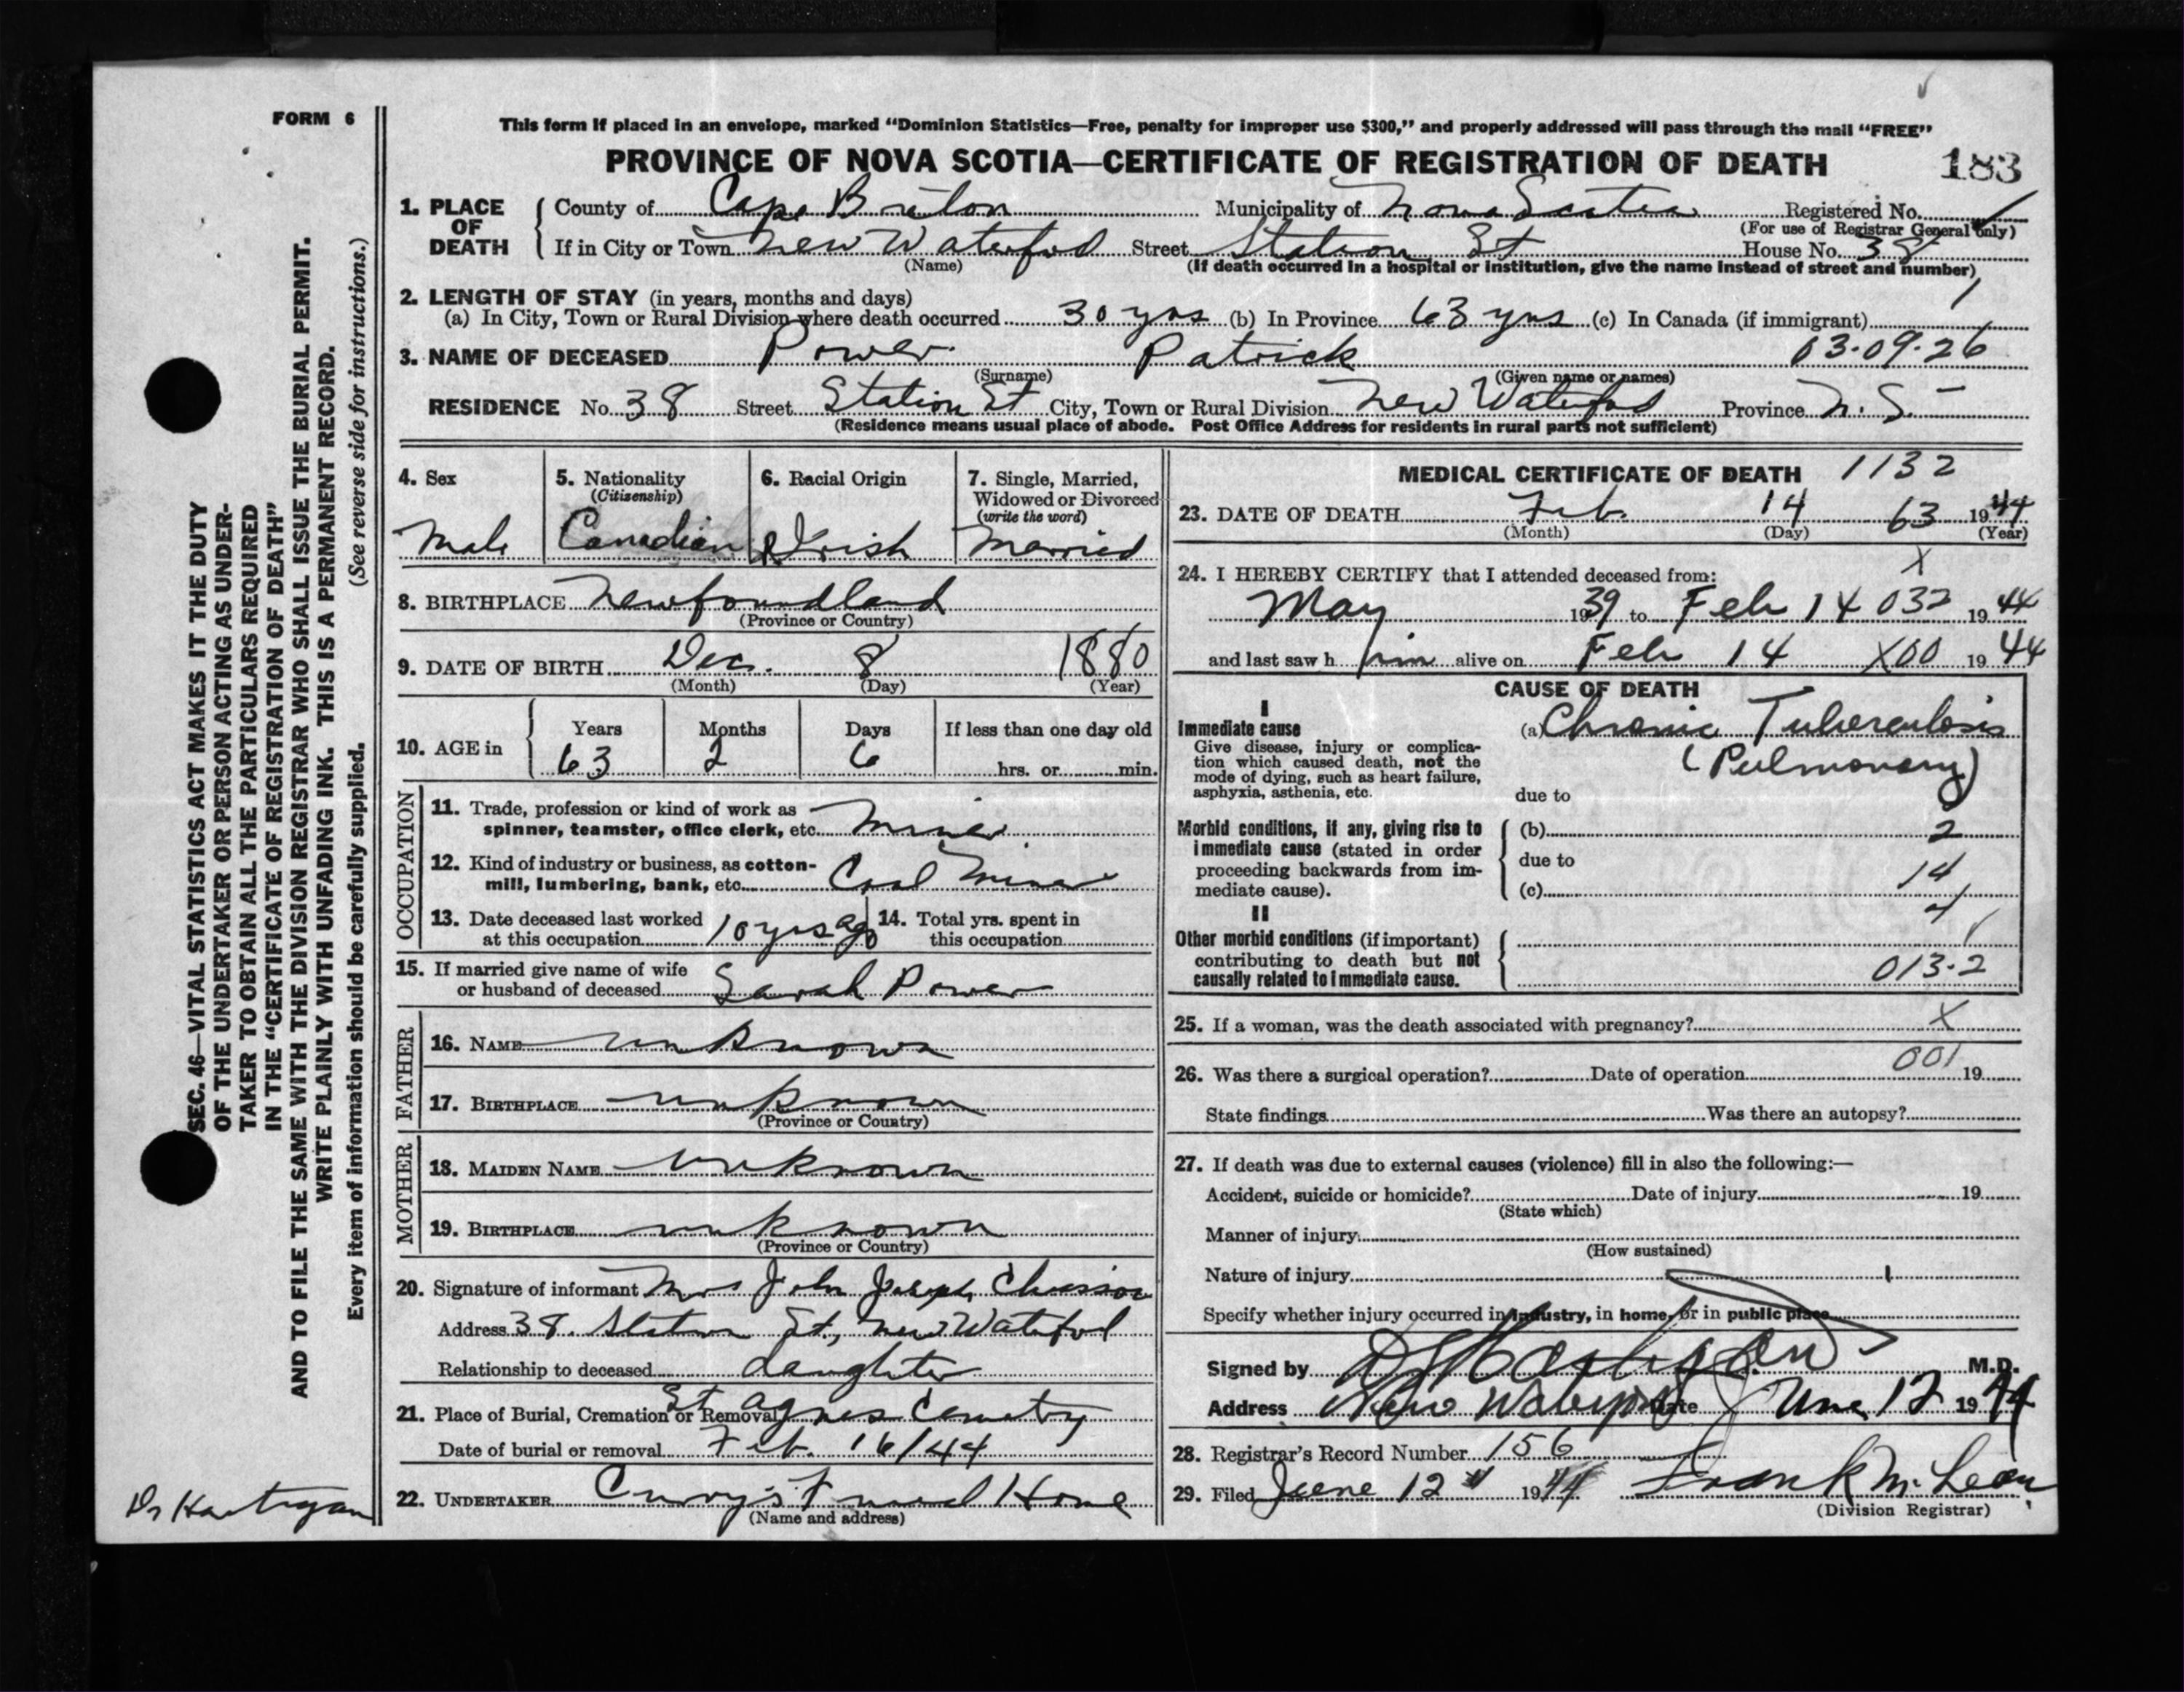 FORM 6
This form if placed in an envelope, marked "Dominion Statistics—Free, penalty for improper use $300," and properly addressed will pass through the mail "FREE"
PROVINCE OF NOVA SCOTIA—CERTIFICATE OF REGISTRATION OF DEATH 183
1. PLACE OF DEATH County of Cape Breton Municipality of Nova Scotia Registered No.
(For use of Registrar General only)
If in City or Town New Waterford Street Station St House No. 38
(Name) (If death occurred in a hospital or institution, give the name instead of street and number)
2. LENGTH OF STAY (in years, months and days)
(a) In City, Town or Rural Division where death occurred 30 yrs (b) In Province 63 yrs (c) In Canada (if immigrant)
3. NAME OF DECEASED Power Patrick 03-09-26
(Surname) (Given name or names)
RESIDENCE No. 38 Street Station St City, Town or Rural Division New Waterford Province N.S.
(Residence means usual place of abode. Post Office Address for residents in rural parts not sufficient)
4. Sex Male
5. Nationality (Citizenship) Canadian
6. Racial Origin Irish
7. Single, Married, Widowed or Divorced (write the word) Married
8. BIRTHPLACE Newfoundland
(Province or Country)
9. DATE OF BIRTH Dec. 8 1880
(Month) (Day) (Year)
10. AGE in Years 63 Months 2 Days 6 If less than one day old
hrs. or min.
OCCUPATION
11. Trade, profession or kind of work as
spinner, teamster, office clerk, etc. Miner
12. Kind of industry or business, as cotton-
mill, lumbering, bank, etc. Coal Mine
13. Date deceased last worked
at this occupation 10 yrs ago
14. Total yrs. spent in
this occupation
15. If married give name of wife
or husband of deceased Sarah Power
FATHER
16. NAME unknown
17. BIRTHPLACE unknown
(Province or Country)
MOTHER
18. MAIDEN NAME unknown
19. BIRTHPLACE unknown
(Province or Country)
20. Signature of informant Mrs John Joseph Chiasson
Address 38. Station St, New Waterford
Relationship to deceased daughter
21. Place of Burial, Cremation or Removal St Agnes Cemetry
Date of burial or removal Feb. 16/44
22. UNDERTAKER Curry's Funeral Home
(Name and address)
MEDICAL CERTIFICATE OF DEATH 1132
23. DATE OF DEATH Feb. 14 63 1944
(Month) (Day) (Year)
X
24. I HEREBY CERTIFY that I attended deceased from:
May 1939 to Feb 14 032 1944
and last saw h him alive on Feb 14 X00 1944
CAUSE OF DEATH
I
Immediate cause (a) Chronic Tuberculosis
(Pulmonary)
Give disease, injury or complica-
tion which caused death, not the
mode of dying, such as heart failure,
asphyxia, asthenia, etc.
due to
Morbid conditions, if any, giving rise to
immediate cause (stated in order
proceeding backwards from im-
mediate cause).
(b) 2
due to
(c) 14
4
II
Other morbid conditions (if important)
contributing to death but not
causally related to immediate cause.
013-2
25. If a woman, was the death associated with pregnancy? X
001
26. Was there a surgical operation? Date of operation 19
State findings Was there an autopsy?
27. If death was due to external causes (violence) fill in also the following:—
Accident, suicide or homicide? Date of injury 19
(State which)
Manner of injury
(How sustained)
Nature of injury
Specify whether injury occurred in industry, in home, or in public place
Signed by Hartigan M.D.
Address New Waterford Date June 12 1944
28. Registrar's Record Number 156
29. Filed June 12 1944 Frank McLean
(Division Registrar)
SEC. 46—VITAL STATISTICS ACT MAKES IT THE DUTY
OF THE UNDERTAKER OR PERSON ACTING AS UNDER-
TAKER TO OBTAIN ALL THE PARTICULARS REQUIRED
IN THE "CERTIFICATE OF REGISTRATION OF DEATH"
AND TO FILE THE SAME WITH THE DIVISION REGISTRAR WHO SHALL ISSUE THE BURIAL PERMIT.
WRITE PLAINLY WITH UNFADING INK. THIS IS A PERMANENT RECORD.
Every item of information should be carefully supplied. (See reverse side for instructions.)
Dr Hartigan